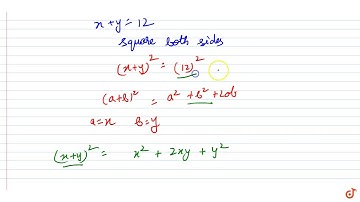 x + y = 12
square both sides
(x+y)² = (12)²
(a+b)² = a² + b² + 2ab
a=x b=y
(x+y)² = x² + 2xy + y²